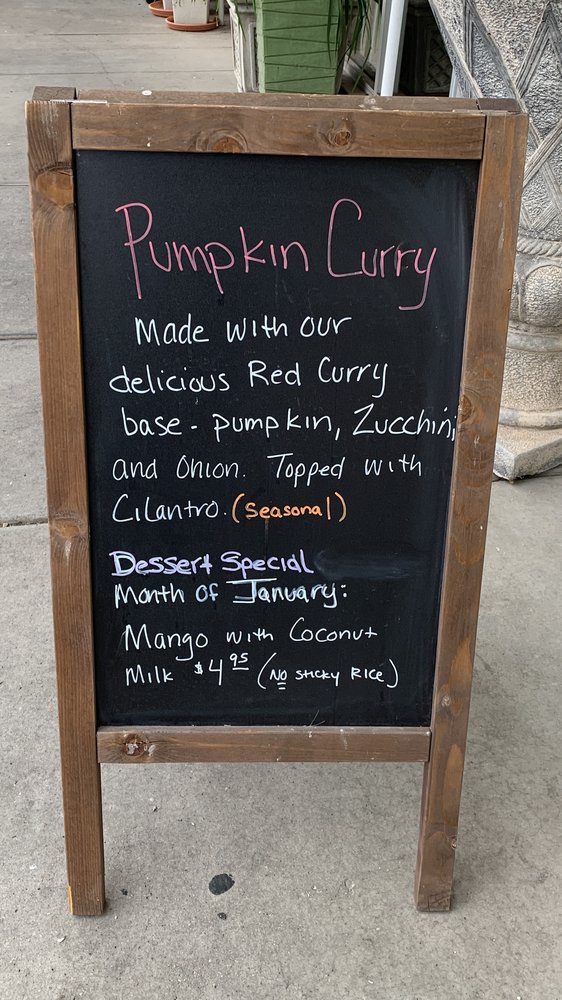 Pumpkin Curry
Made with our
delicious Red Curry
base - pumpkin, Zucchini,
and Onion. Topped with
Cilantro. (Seasonal)
Dessert Special
Month of January:
Mango with Coconut
Milk $4 95 (No sticky Rice)